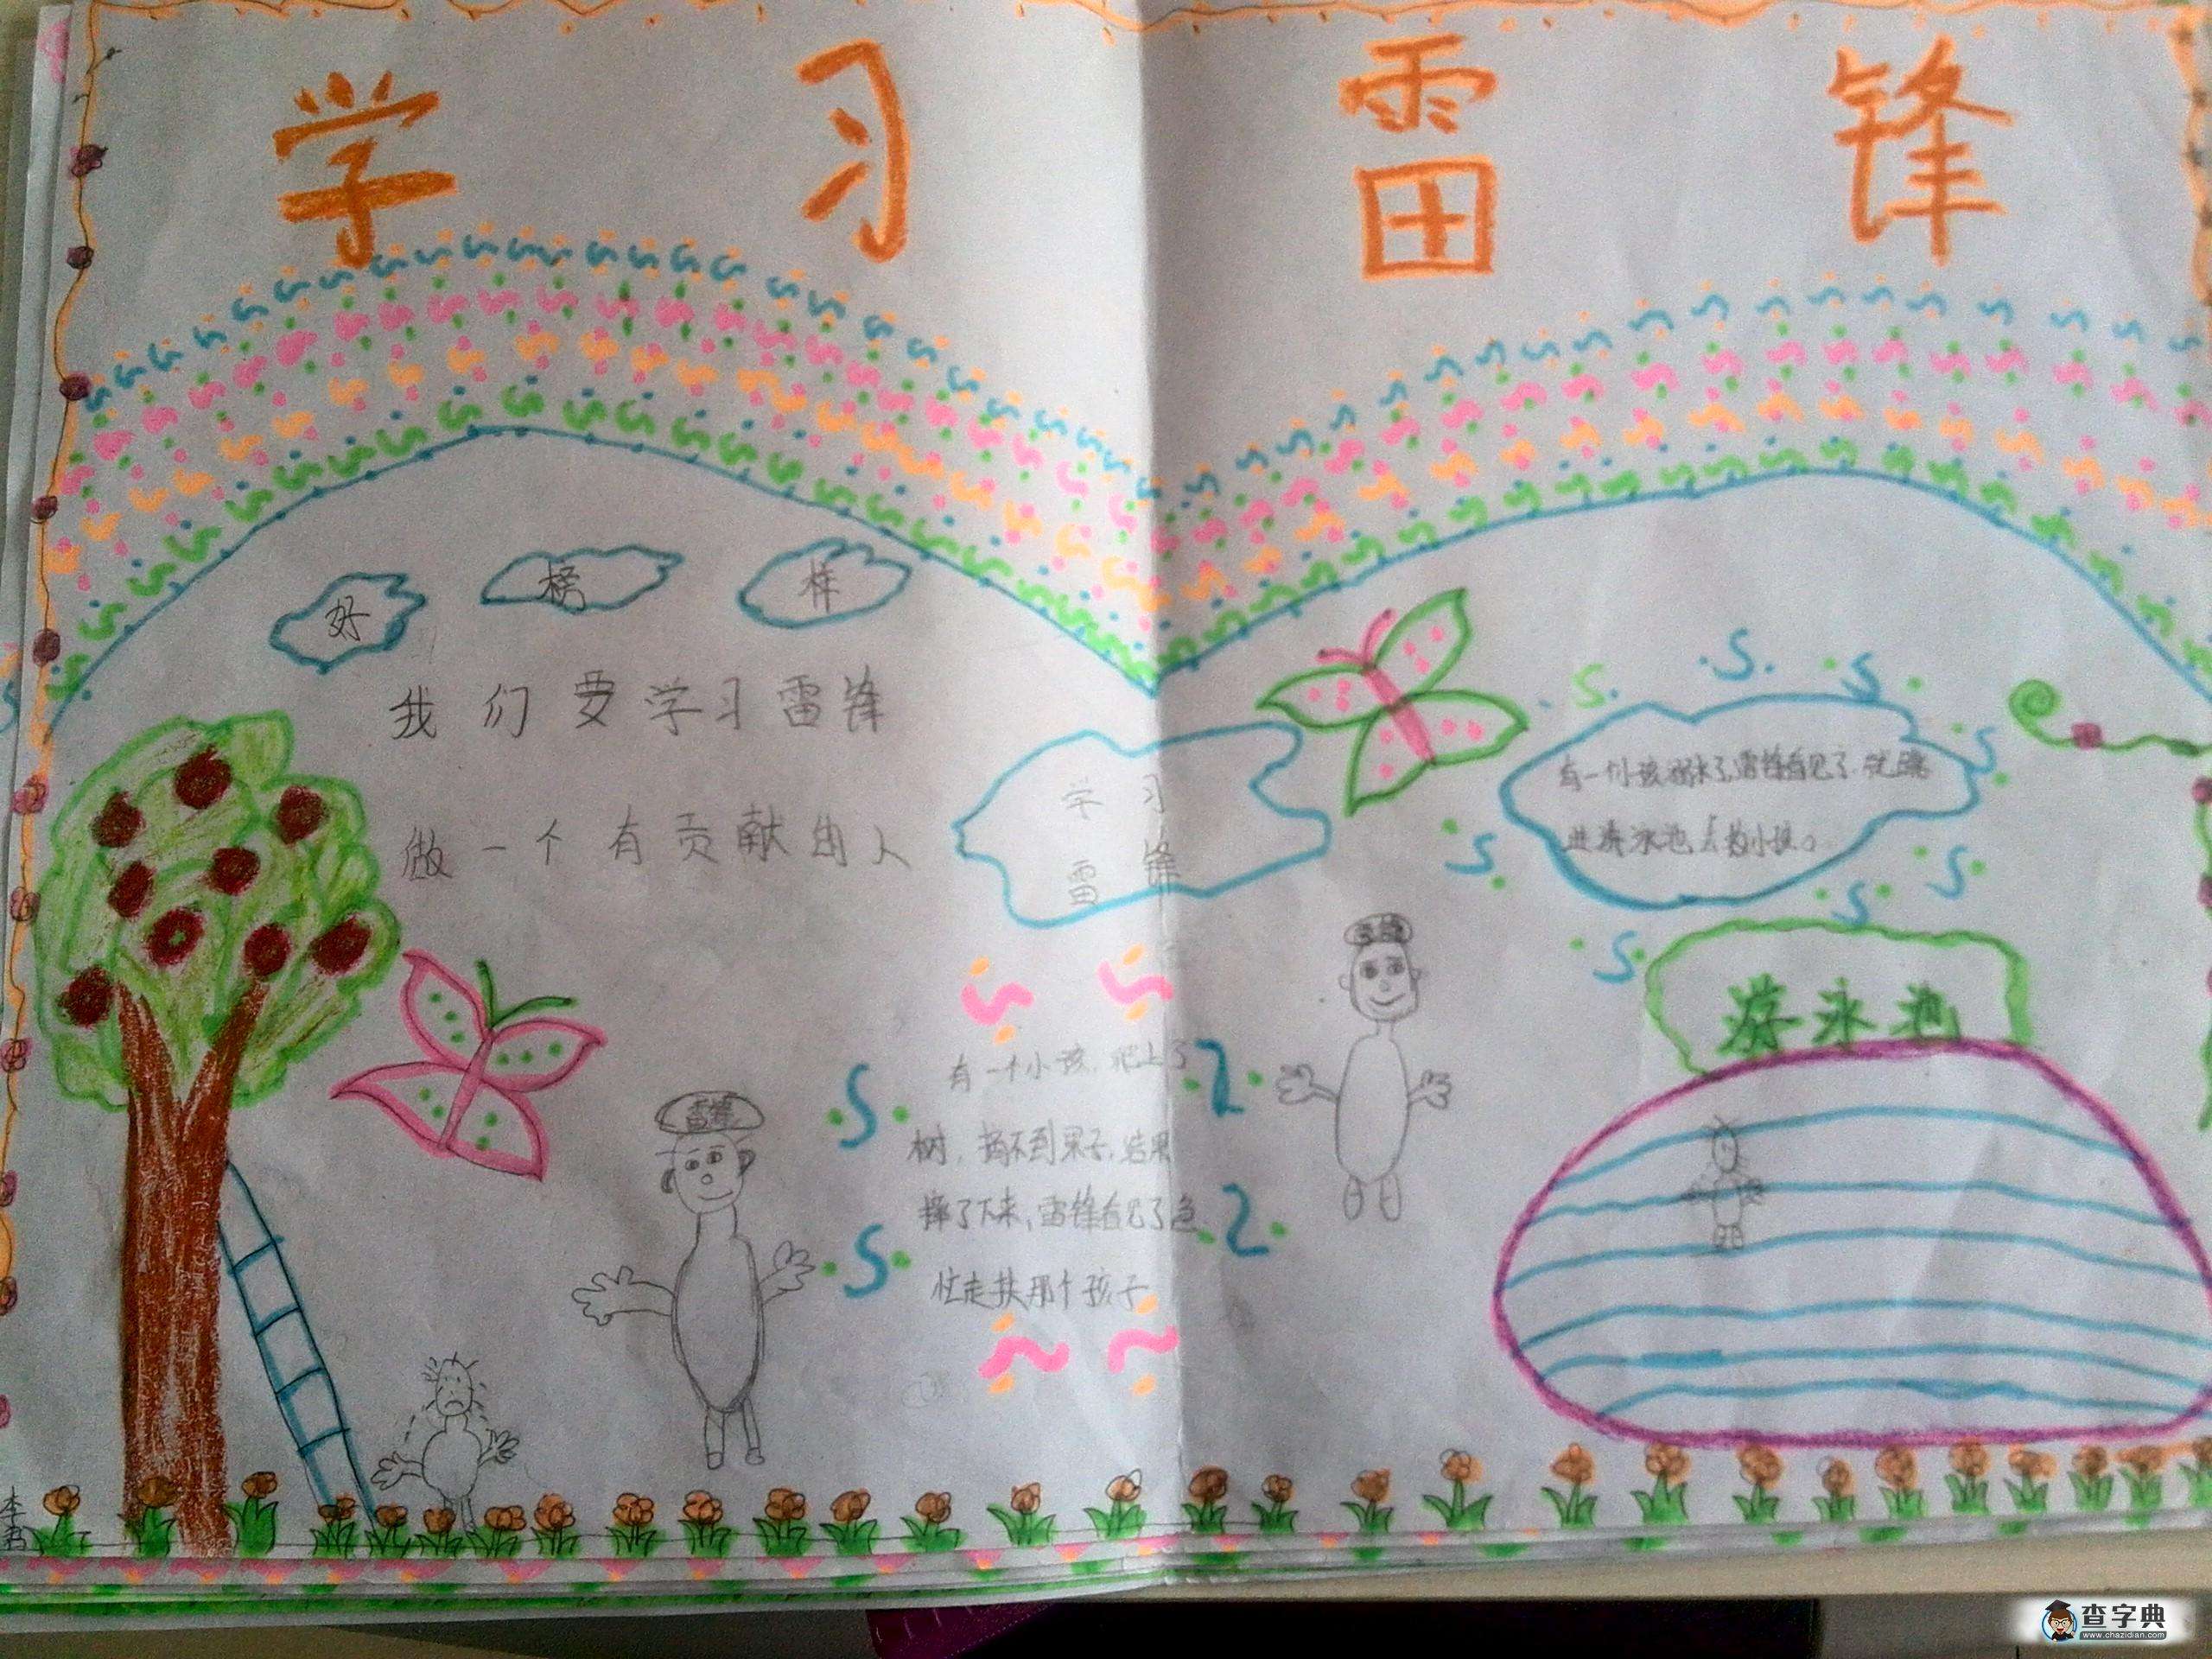 学习雷锋
好榜样
我们要学习雷锋
做一个有贡献的人
学习
雷锋
有一个小孩溺水了,雷锋看见了,就跳
进游泳池去救小孩。
游泳池
雷锋
雷锋
有一个小孩,爬上了
树,摘不到果子,结果
摔了下来,雷锋看见了急
忙走扶那个孩子
查字典
www.chazidian.com